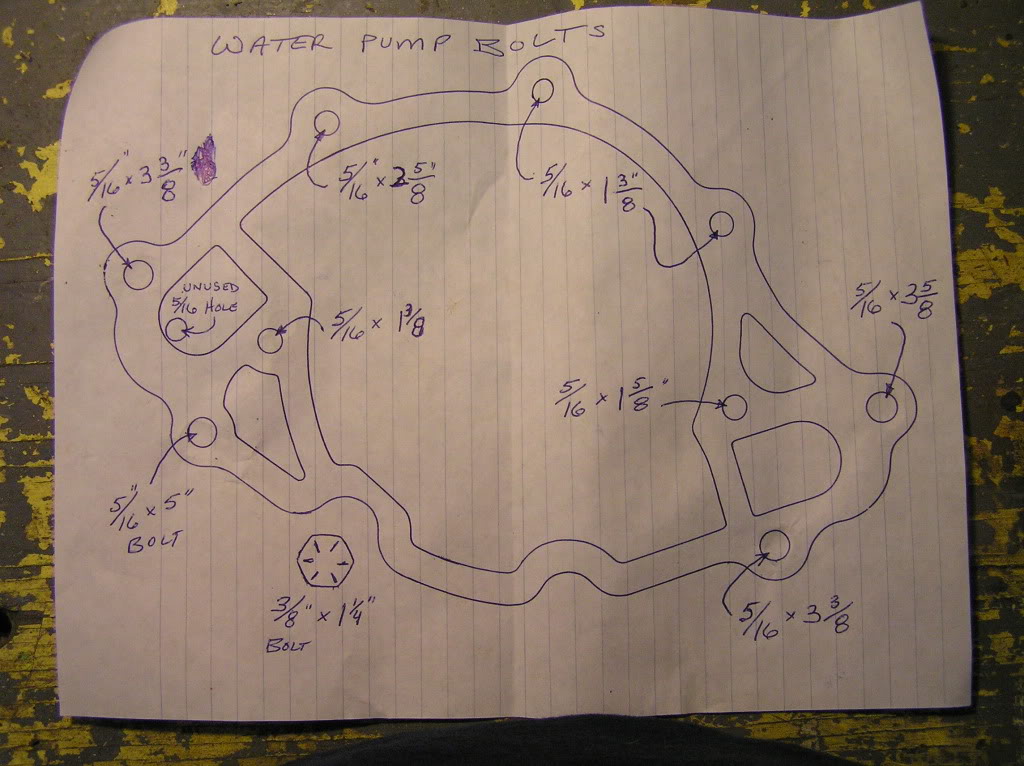 WATER PUMP BOLTS
5/16" x 3 3/8"
5/16" x 2 5/8"
5/16 x 1 3/8"
UNUSED
5/16 HOLE
5/16 x 1 3/8
5/16 x 3 5/8
5/16 x 1 5/8"
5/16" x 5"
BOLT
3/8" x 1 1/4"
BOLT
5/16 x 3 3/8